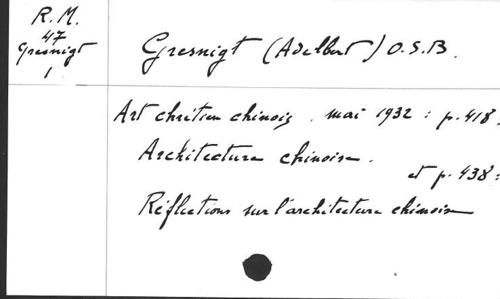 R.M.
47
Gresnigt
1
Gresnigt (Adelbert) O.S.B.
Art chrétien chinois. mai 1932 : p. 418.
Architecture chinoise.
et p. 438 :
Réflections sur l'architecture chinoise